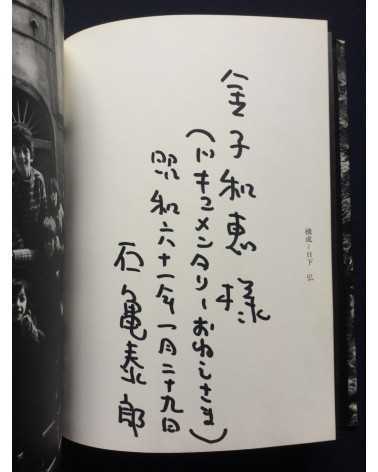 金子和恵様
(ドキュメンタリーおめでとさま)
昭和六十一年一月二十九日
石亀泰郎
構成=日下 弘